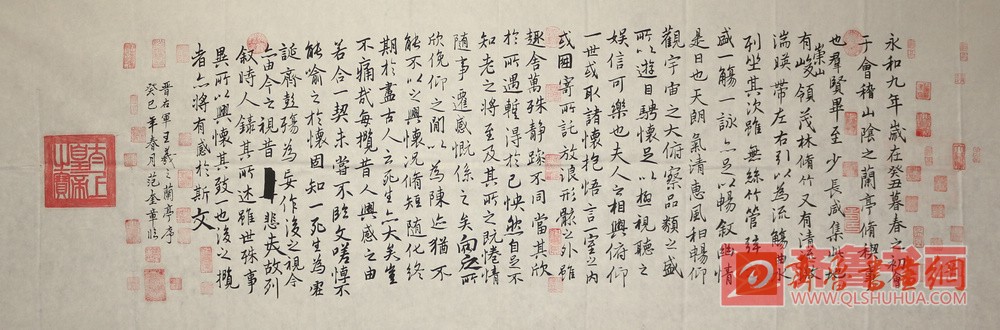 永和九年歲在癸丑暮春之初會
于會稽山陰之蘭亭脩稧事
也羣賢畢至少長咸集此地
有崇山峻領茂林脩竹又有清流激
湍暎帶左右引以為流觴曲水
列坐其次雖無絲竹管弦之
盛一觴一詠亦足以暢敘幽情
是日也天朗氣清惠風和暢仰
觀宇宙之大俯察品類之盛
所以遊目騁懷足以極視聽之
娛信可樂也夫人之相與俯仰
一世或取諸懷抱悟言一室之內
或因寄所託放浪形骸之外雖
趣舍萬殊靜躁不同當其欣
於所遇蹔得於己怏然自足不
知老之將至及其所之既惓情
隨事遷感慨係之矣向之所
欣俛仰之閒以為陳迹猶不
能不以之興懷況脩短隨化終
期於盡古人云死生亦大矣豈
不痛哉每攬昔人興感之由
若合一契未嘗不臨文嗟悼不
能喻之於懷固知一死生為虛
誕齊彭殤為妄作後之視今
亦由今之視昔 悲夫故列
敘時人錄其所述雖世殊事
異所以興懷其致一也後之攬
者亦將有感於斯文
晉右軍王羲之蘭亭序
癸巳年春月范奎章臨
太上皇帝之寶
齐鲁書画網
WWW.QLSHUHUA.COM